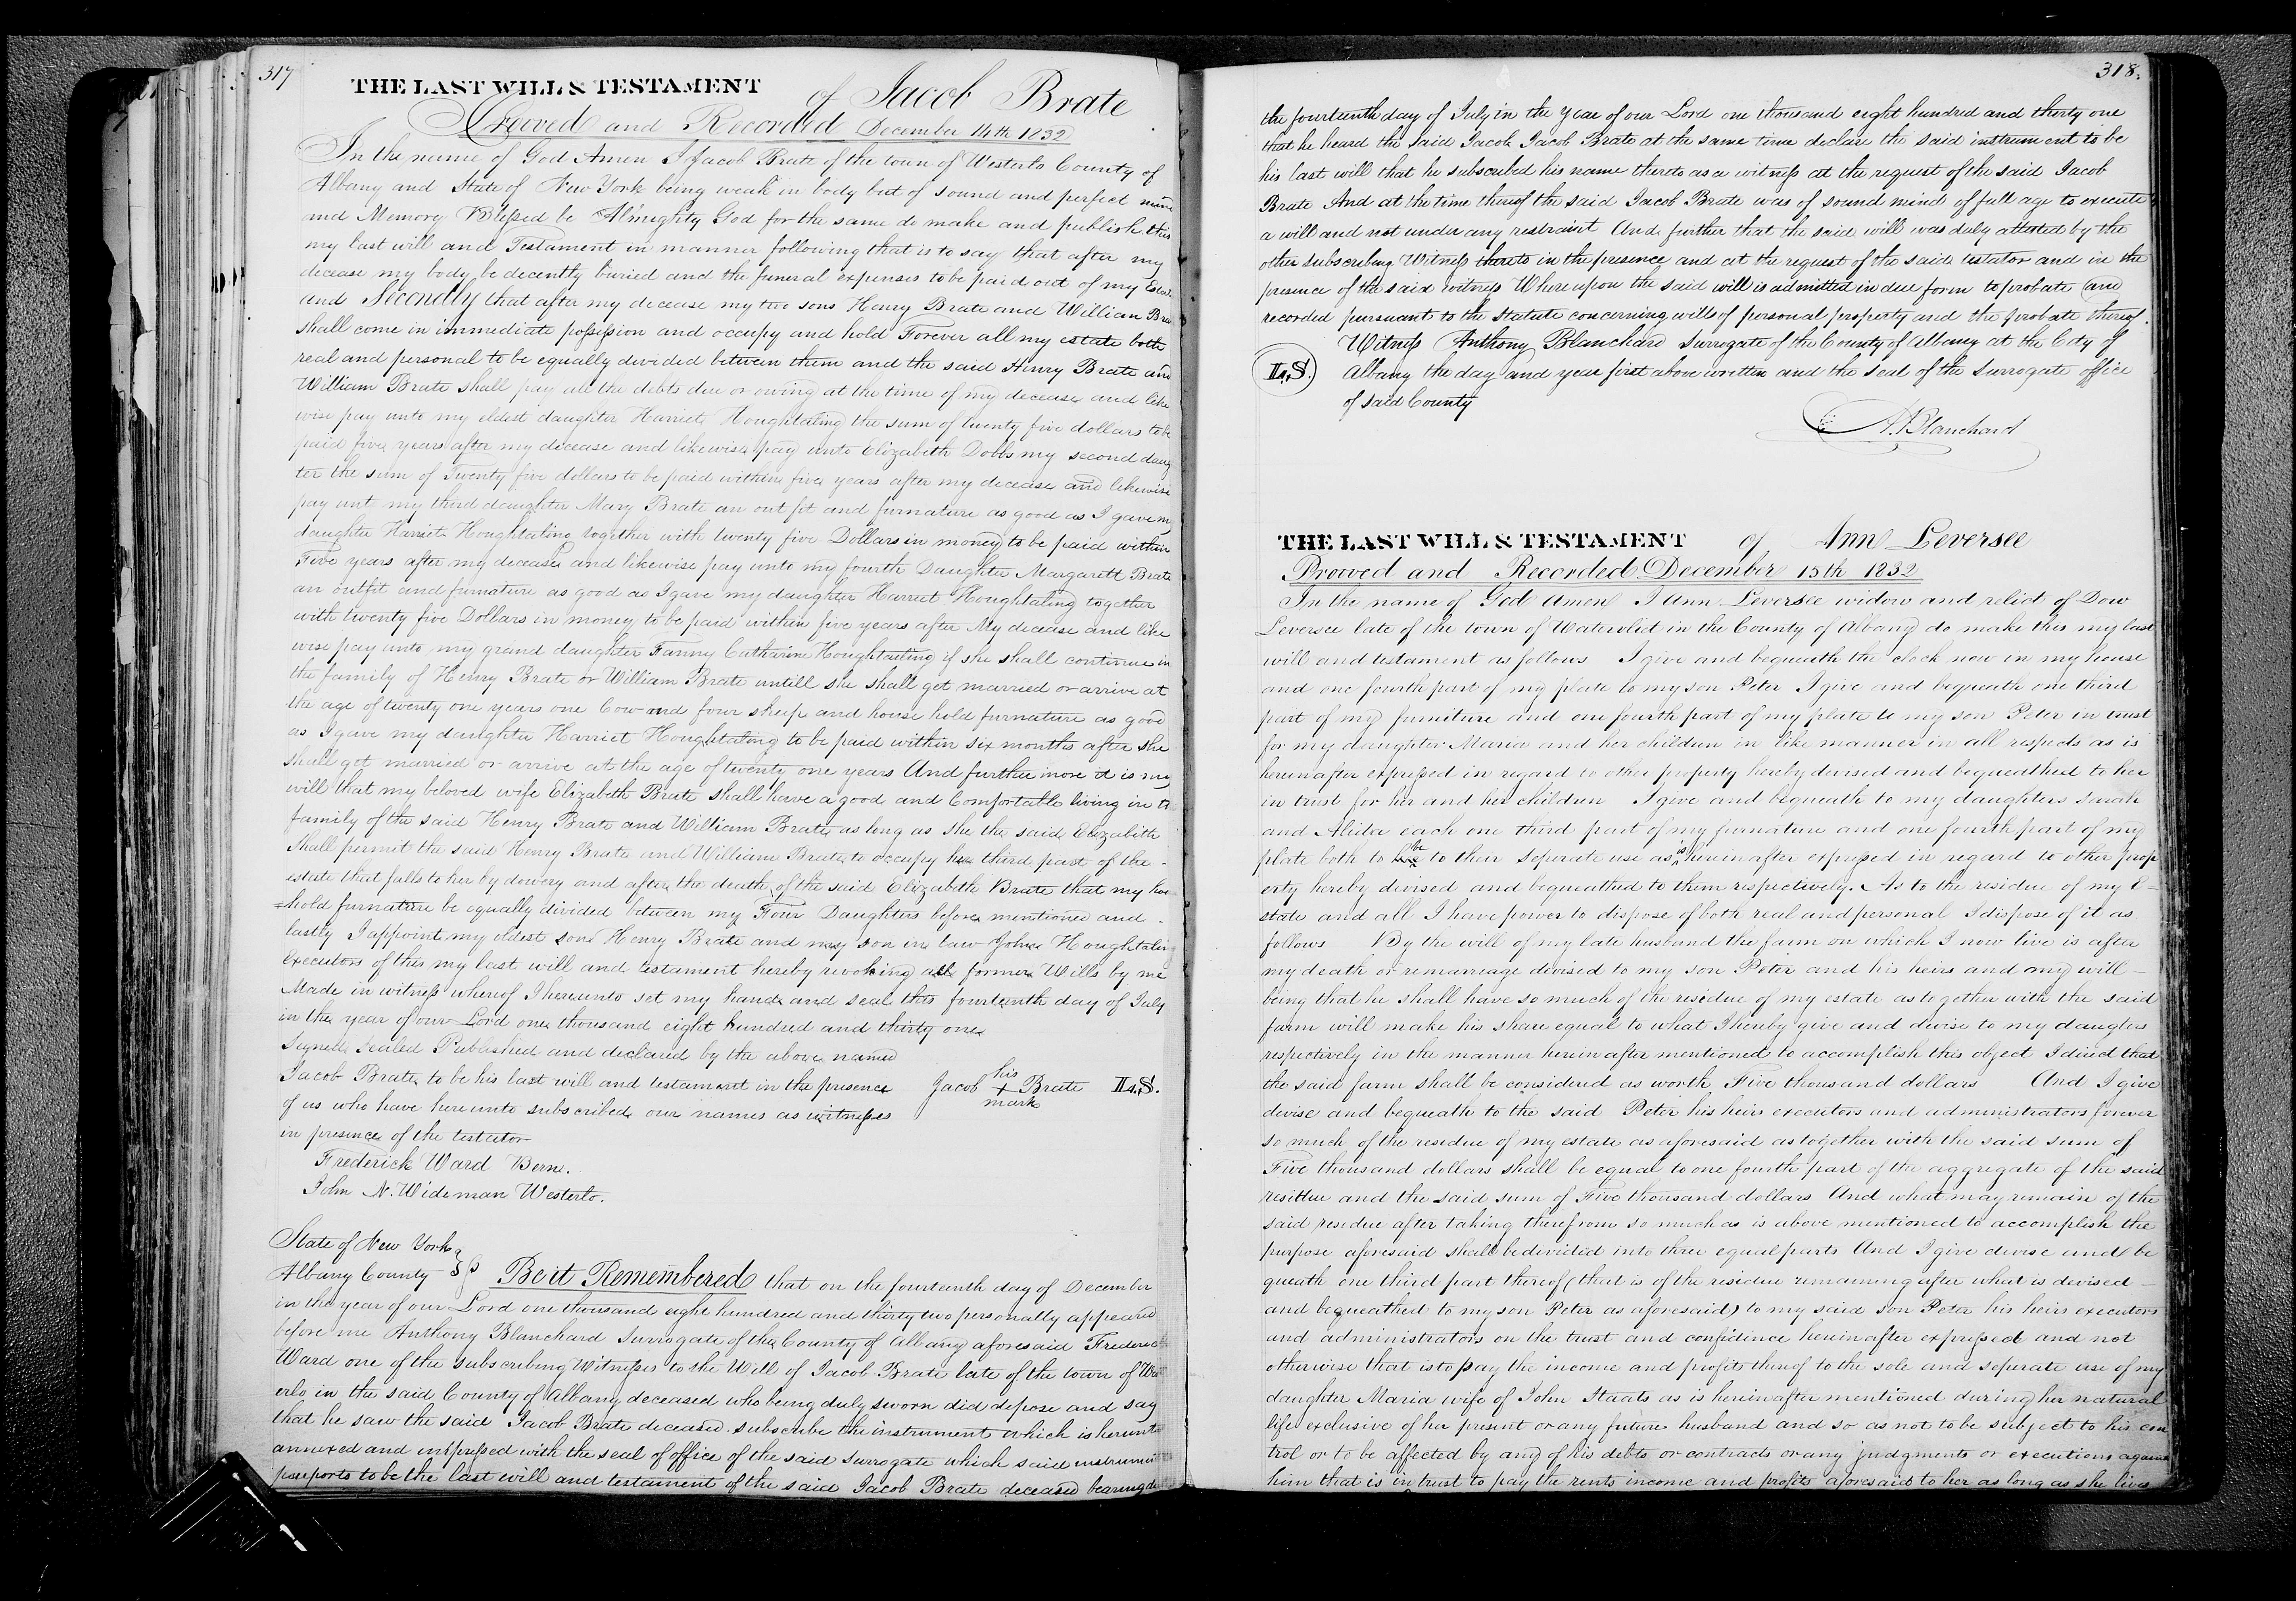 317
THE LAST WILL & TESTAMENT of Jacob Brate
Prooved and Recorded December 14th 1832
In the name of God Amen I Jacob Brate of the town of Westerlo County of
Albany and State of New York being weak in body but of sound and perfect mind
and Memory Blessed be Almighty God for the same do make and publish this
my last will and Testament in manner following that is to say that after my
decease my body be decently buried and the funeral expenses to be paid out of my Estate
and Secondly that after my decease my two sons Henry Brate and William Bra
shall come in immediate possession and occupy and hold Forever all my estate both
real and personal to be equally divided between them and the said Henry Brate and
William Brate shall pay all the debts due or owing at the time of my decease and like
wise pay unto my eldest daughter Harriet Houghtaling the sum of twenty five dollars to be
paid five years after my decease and likewise pay unto Elizabeth Dobbs my second daug
ter the sum of Twenty five dollars to be paid within five years after my decease and likewise
pay unt my third daughter Mary Brate an out fit and furnature as good as I gave m
daughter Harriet Houghtaling together with twenty five Dollars in money to be paid within
Five years after my decease and likewise pay unto my fourth Daughter Margarett Brate
an outfit and furnature as good as I gave my daughter Harriet Houghtaling together
with twenty five Dollars in money to be paid within five years after My decease and like
wise pay unto my grand daughter Fanny Catharine Houghtaling if she shall continue in
the family of Henry Brate or William Brate untill she shall get married or arrive at
the age of twenty one years one Cow and four sheep and house hold furnature as good
as I gave my daughter Harriet Houghtaling to be paid within six months after she
shall get married or arrive at the age of twenty one years And further more it is my
will that my beloved wife Elizabeth Brate shall have a good and Comfortable living in th
family of the said Henry Brate and William Brate as long as She the said Elizabeth
Shall permit the said Henry Brate and William Brate to occupy her third part of the -
estate that falls to her by dowery and after the death of the said Elizabeth Brate that my hou
=hold furnature be equally divided between my Four Daughters before mentioned and -
lastly I appoint my oldest son Henry Brate and my son in law John Houghtaling
executors of this my last will and testament hereby revoking all former Wills by me
Made in witness whereof I hereunto set my hand and seal this fourteenth day of July
in the year of our Lord one thousand eight hundred and thirty one
Signed sealed Published and declared by the above named
Jacob Brate to be his last will and testament in the presence Jacob his + mark Brate L.S.
of us who have hereunto subscribed our names as witnesses
in presence of the testator
Frederick Ward Bern.
John N. Wideman Westerlo.
State of New York
Albany County ss Be it Remembered that on the fourteenth day of December
in the year of our Lord one thousand eight hundred and thirty two personally appeared
before me Anthony Blanchard Surrogate of the County of Albany aforesaid Frederick
Ward one of the subscribing Witnesses to the Will of Jacob Brate late of the town of West
erlo in the said County of Albany deceased who being duly sworn did depose and say
that he saw the said Jacob Brate deceased subscribe the instrument which is hereunto
annexed and impressed with the seal of office of the said Surrogate which said instrument
purports to be the last will and testament of the said Jacob Brate deceased bearing da
318.
the fourteenth day of July in the year of our Lord one thousand eight hundred and thirty one
that he heard the said Jacob Jacob Brate at the same time declare the said instrument to be
his last will that he subscribed his name thereto as a witness at the request of the said Jacob
Brate And at the time thereof the said Jacob Brate was of sound mind of full age to execute
a will and not under any restraint And further that the said will was duly attested by the
other subscribing Witness thereto in the presence and at the request of the said testator and in the
presence of the said witness Whereupon the said will is admitted in due form to probate and
recorded pursuant to the statute concerning wills of personal property and the probate thereof.
Witness Anthony Blanchard Surrogate of the County of Albany at the City of
L.S. Albany the day and year first above written and the seal of the Surrogate office
of said County
A. Blanchard
THE LAST WILL & TESTAMENT of Ann Leversee
Proved and Recorded December 15th 1832
In the name of God Amen I Ann Leversee widow and relict of Dow
Leversee late of the town of Watervliet in the County of Albany do make this my last
will and testament as follows I give and bequeath the clock now in my house
and one fourth part of my plate to my son Peter I give and bequeath one third
part of my furniture and one fourth part of my plate to my son Peter in trust
for my daughter Maria and her children in like manner in all respects as is
hereinafter expressed in regard to other property hereby devised and bequeathed to her
in trust for her and her children I give and bequeath to my daughters Sarah
and Alida each one third part of my furnature and one fourth part of my
plate both to be to their seperate use as is hereinafter expressed in regard to other prop
erty hereby devised and bequeathed to them respectively. As to the residue of my E-
state and all I have power to dispose of both real and personal I dispose of it as
follows By the will of my late husband the farm on which I now live is after
my death or remarriage devised to my son Peter and his heirs and my will -
being that he shall have so much of the residue of my estate as together with the said
farm will make his share equal to what I hereby give and devise to my daugters
respectively in the manner herein after mentioned to accomplish this object I direct that
the said farm shall be considered as worth Five thousand dollars And I give
devise and bequeath to the said Peter his heirs executors and administrators forever
so much of the residue of my estate as aforesaid as together with the said sum of
Five thousand dollars shall be equal to one fourth part of the aggregate of the said
residue and the said sum of Five thousand dollars And what may remain of the
said residue after taking therefrom so much as is above mentioned to accomplish the
purpose aforesaid shall be divided into three equal parts And I give devise and be
queath one third part thereof (that is of the residue remaining after what is devised -
and bequeathed to my son Peter as aforesaid) to my said son Peter his heirs executors
and administrators on the trust and confidence hereinafter expressed and not
otherwise that is to pay the income and profits thereof to the sole and seperate use of my
daughter Maria wife of John Staats as is hereinafter mentioned during her natural
life exclusive of her present or any future husband and so as not to be subject to his con
trol or to be affected by any of his debts or contracts or any judgments or executions against
him that is in trust to pay the rents income and profits aforesaid to her as long as she lives